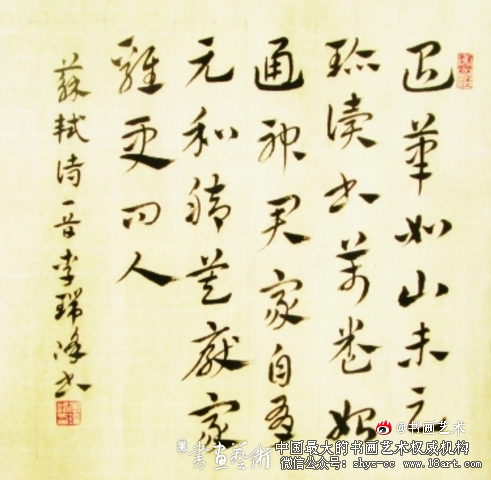 退筆如山未足
珍讀書萬卷始
通神君家自有
元和脚莫厭家
雞更問人
蘇軾詩一首李瑞書
@书画艺术
書畫藝術
中国最大的书画艺术权威机构
微信公众号: shys-cc www.18art.com